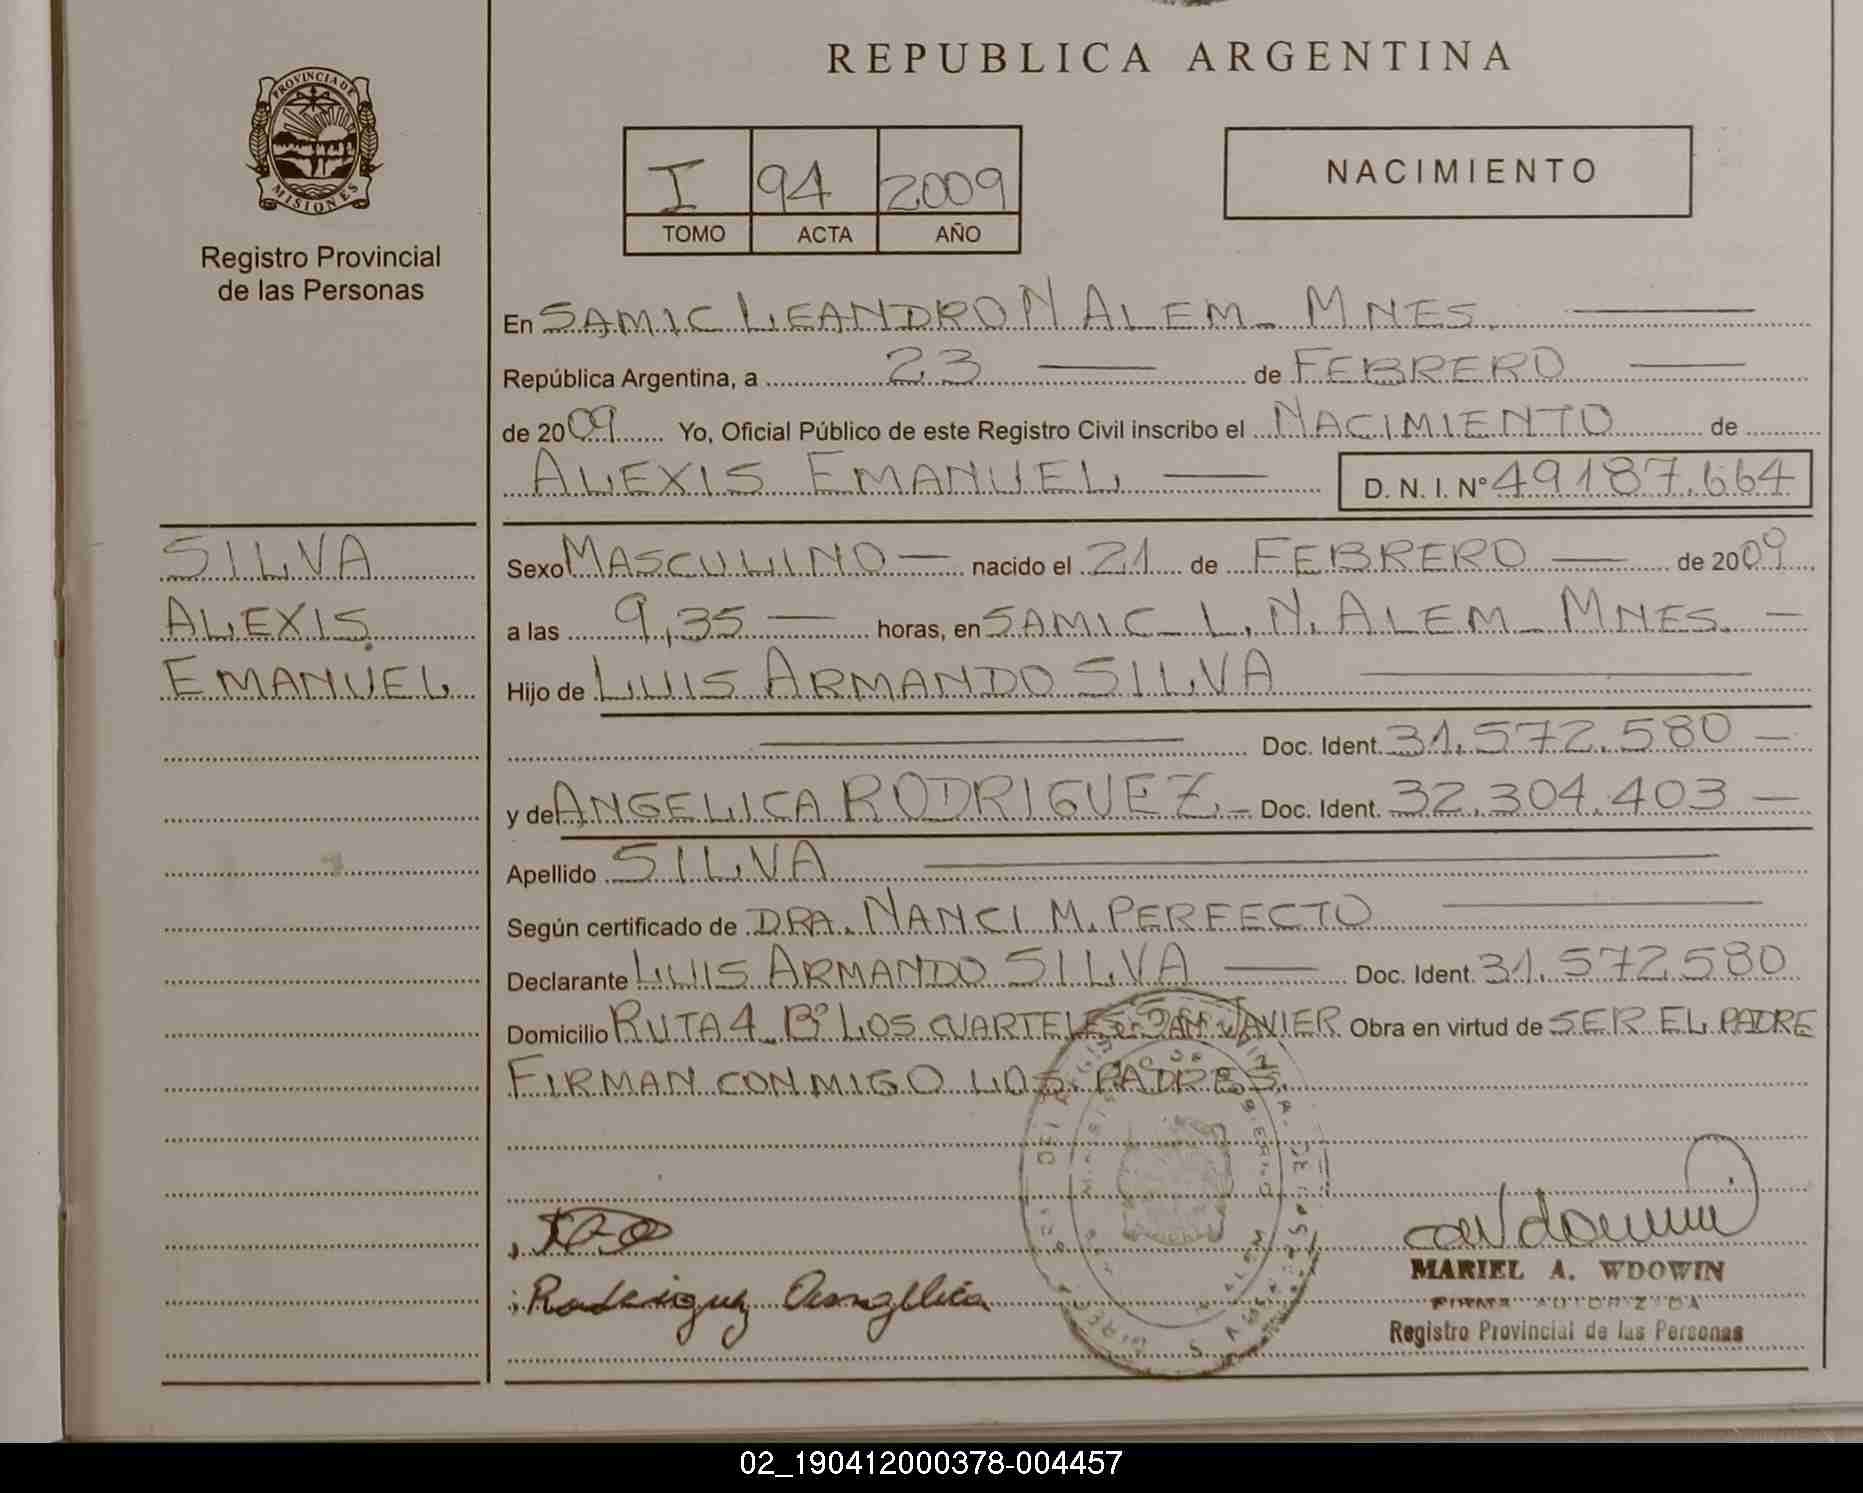 REPUBLICA ARGENTINA
PROVINCIA DE
MISIONES
Registro Provincial
de las Personas
I 94 2009
TOMO ACTA AÑO
NACIMIENTO
En SAMIC LEANDRO N ALEM - MNES.
República Argentina, a 23 de FEBRERO
de 2009 Yo, Oficial Público de este Registro Civil inscribo el NACIMIENTO de
ALEXIS EMANUEL D. N. I. Nº 49187.664
SILVA
ALEXIS
EMANUEL
Sexo MASCULINO nacido el 21 de FEBRERO de 2009
a las 9,35 horas, en SAMIC - L. N. ALEM - MNES.
Hijo de LUIS ARMANDO SILVA
Doc. Ident. 31.572.580
y de ANGELICA RODRIGUEZ Doc. Ident. 32.304.403
Apellido SILVA
Según certificado de DRA. NANCI M. PERFECTO
Declarante LUIS ARMANDO SILVA Doc. Ident. 31.572.580
Domicilio RUTA 4 Bº LOS CUARTELES SAN JAVIER Obra en virtud de SER EL PADRE
FIRMAN CONMIGO LOS PADRES
Rodriguez Angelica
MARIEL A. WDOWIN
FIRMA AUTORIZADA
Registro Provincial de las Personas
02_190412000378-004457